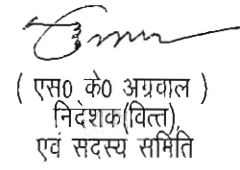 ( एस0 के0 अग्रवाल )
निदेशक(वित्त),
एवं सदस्य समिति